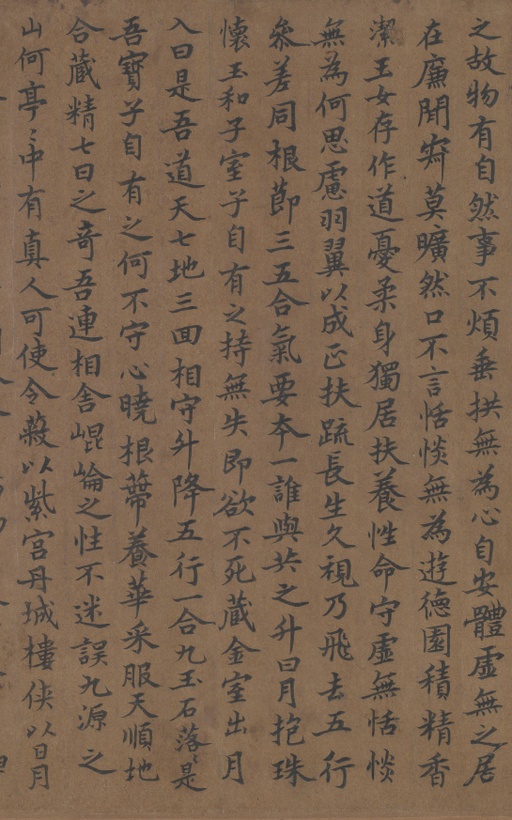 之故物有自然事不煩垂拱無為心自安體虛無之居
在廉閒㝛莫曠然口不言恬惔無為遊德園積精香
潔玉女存作道憂柔身獨居扶養性命守虛無恬惔
無為何思慮羽翼以成正扶疏長生久視乃飛去五行
參差同根莭三五合氣要夲一誰與共之升日月抱珠
懷玉和子室子自有之持無失即欲不死藏金室出月
入日是吾道天七地三回相守升降五行一合九玉石落〻是
吾寶子自有之何不守心曉根蔕養華采服天順地
合藏精七日之奇吾連相舍崐崙之性不迷誤九源之
山何亭〻中有真人可使令蔽以紫宫丹城樓俠以日月